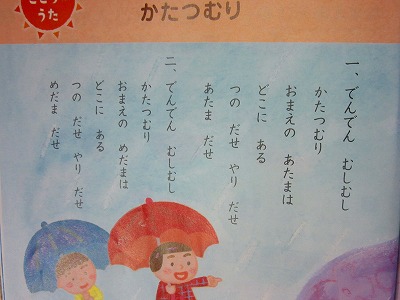 うた
かたつむり
一、でんでん むしむし
かたつむり
おまえの あたまは
どこに ある
つの だせ やり だせ
あたま だせ
二、でんでん むしむし
かたつむり
おまえの めだまは
どこに ある
つの だせ やり だせ
めだま だせ